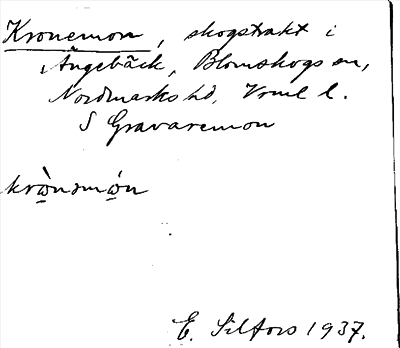 Kronemon, skogstrakt i
Ängebäck, Blomskogs sn,
Nordmarks hd, Vrml l.
S Gravaremon
krὼnəmώn
E. Silfors 1937.